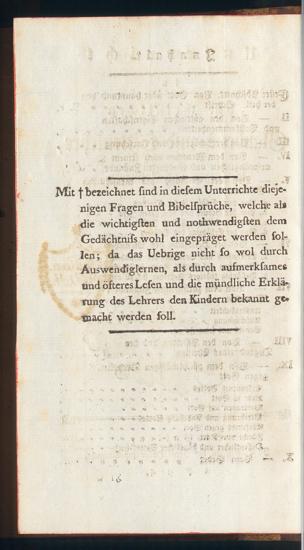 Mit † bezeichnet sind in diesem Unterrichte dieje-
nigen Fragen und Bibelsprüche, welche als
die wichtigsten und nothwendigsten dem
Gedächtniss wohl eingepräget werden sol-
len; da das Uebrige nicht so wol durch
Auswendiglernen, als durch aufmerksames
und öfteres Lesen und die mündliche Erklä-
rung des Lehrers den Kindern bekannt ge-
macht werden soll.